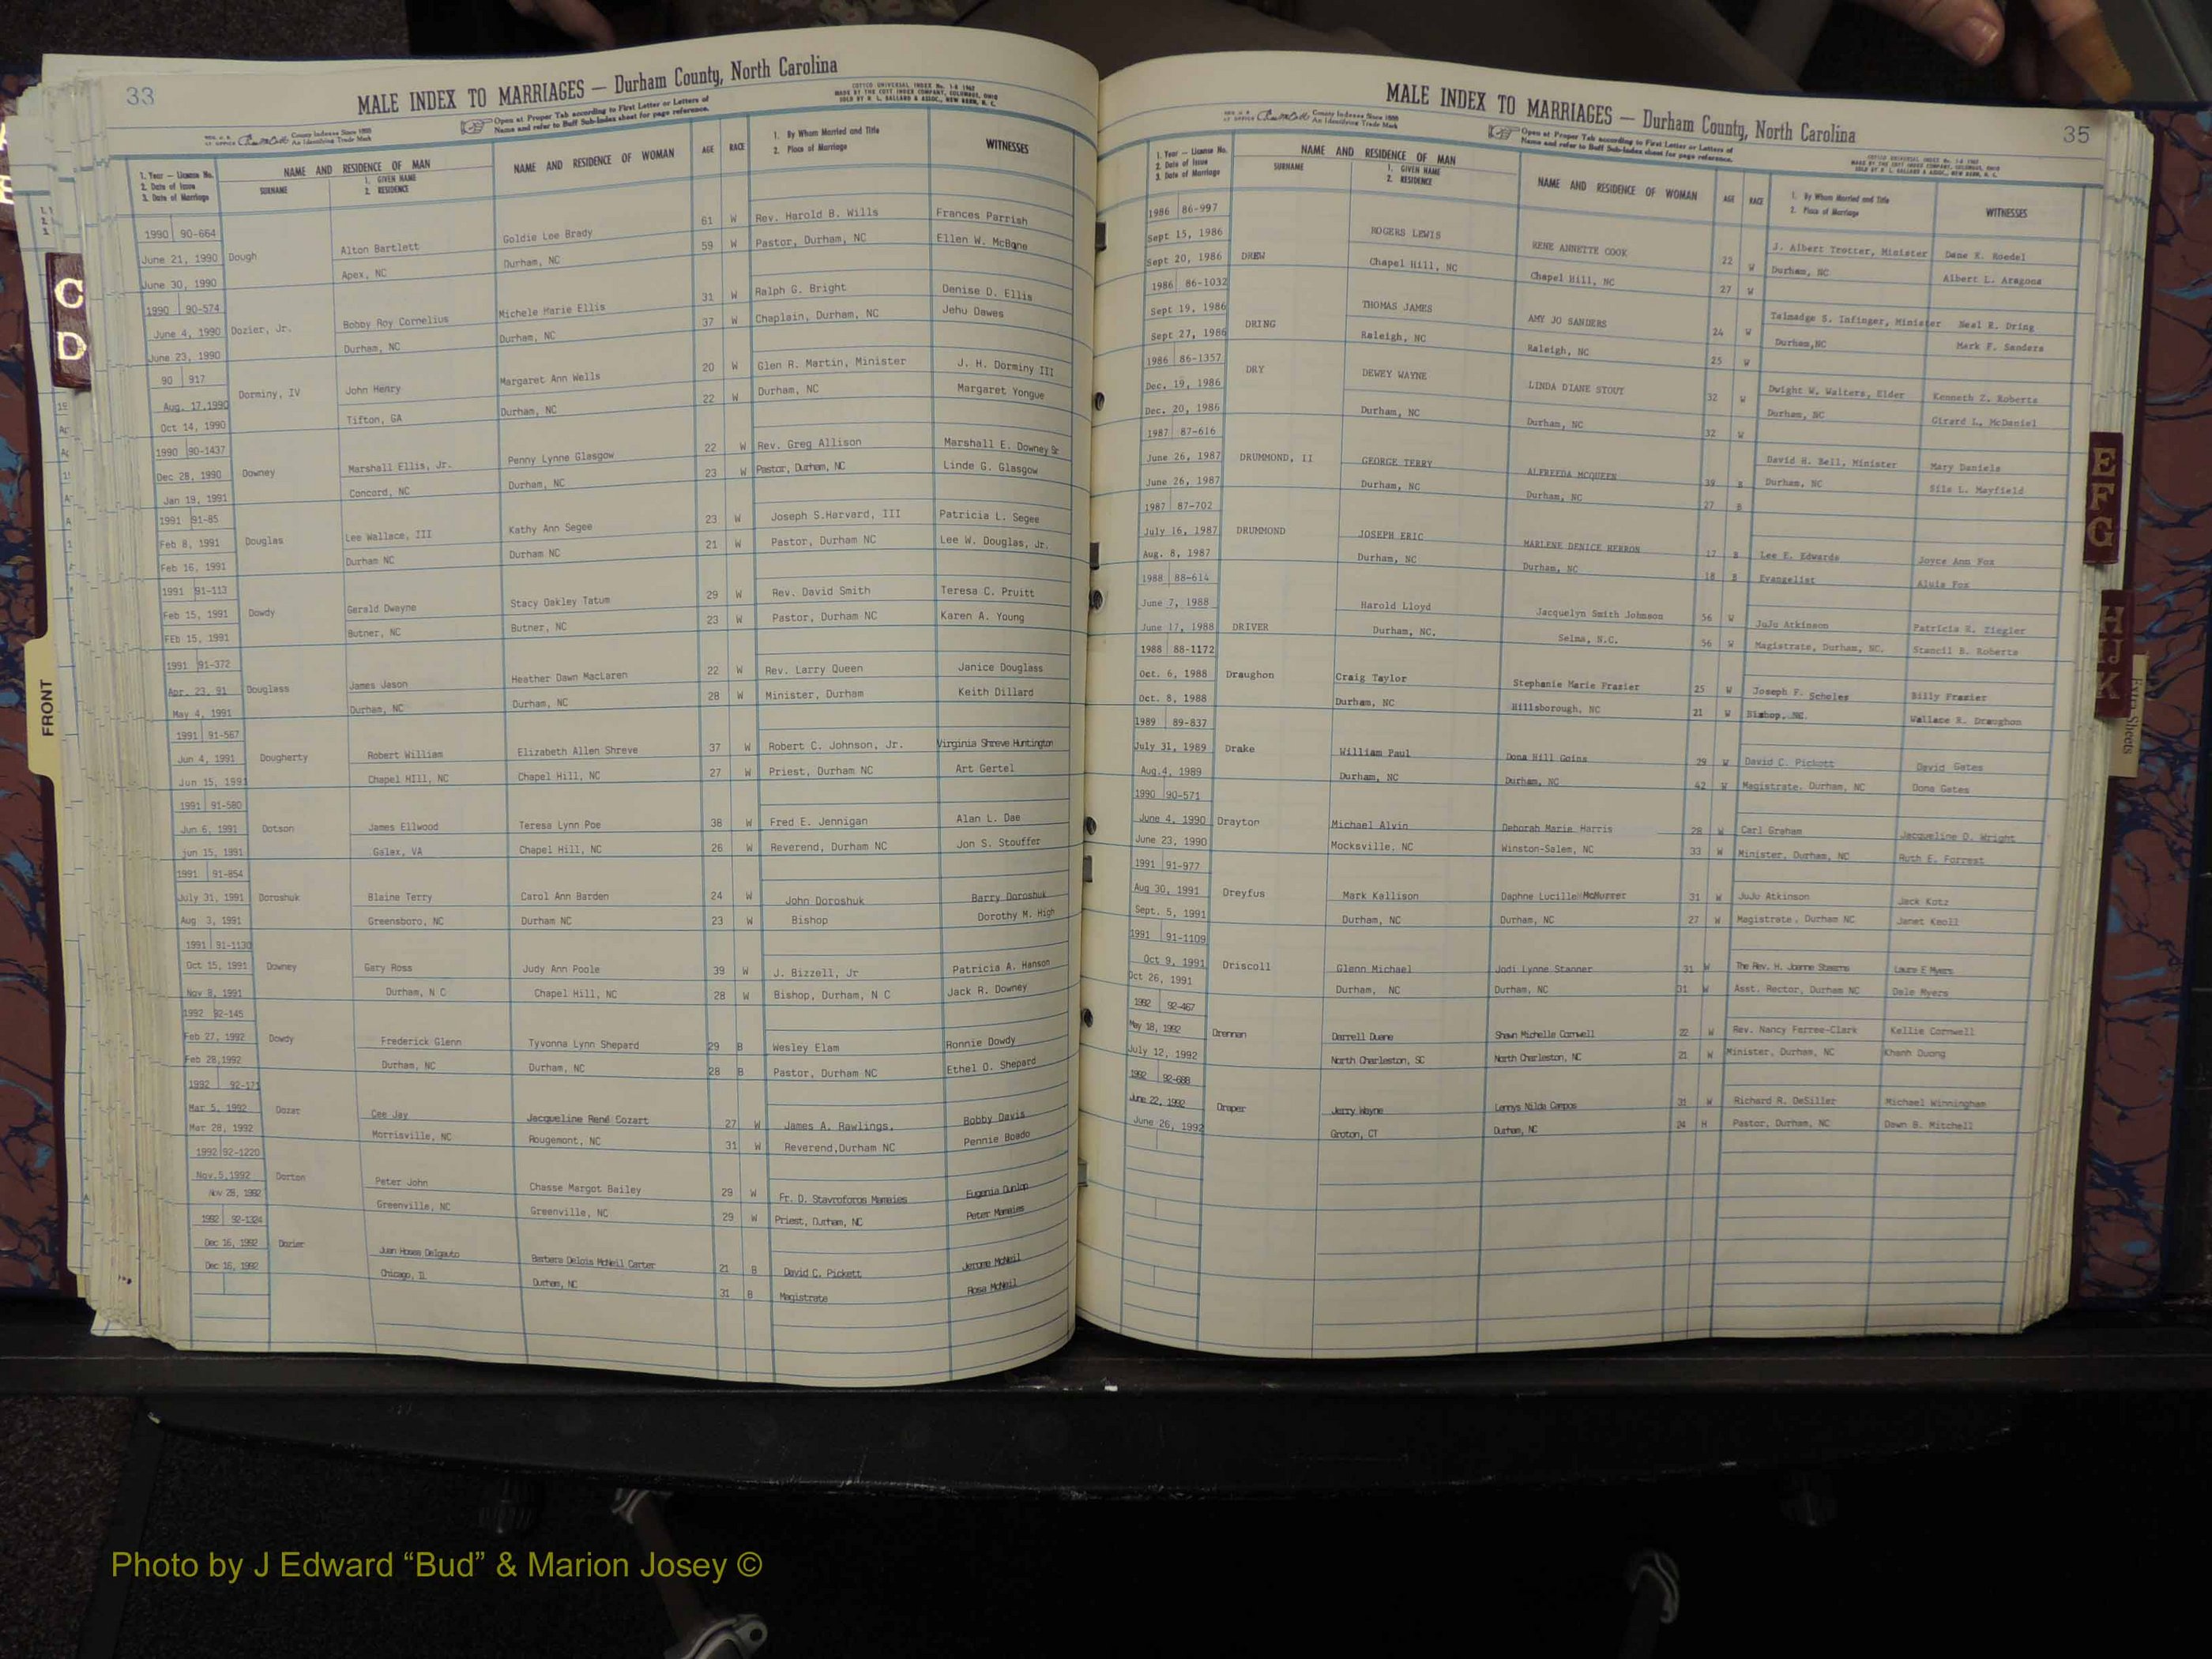 33
MALE INDEX TO MARRIAGES — Durham County, North Carolina
COTTCO UNIVERSAL INDEX No.
MADE BY THE COTT INDEX COMPANY, COLUMBUS, OHIO
SOLD BY
County Indexes Since 1888
An Identifying Trade Mark
Open at Proper Tab according to First Letter or Letters of
Name and refer to Buff Sub-Index sheet for page reference.
1. Year — License No.
2. Date of Issue
3. Date of Marriage
NAME AND RESIDENCE OF MAN
SURNAME
1. GIVEN NAME
2. RESIDENCE
NAME AND RESIDENCE OF WOMAN
AGE
RACE
1. By Whom Married and Title
2. Place of Marriage
WITNESSES
1990 90-664 Goldie Lee Brady 61 W Rev. Harold B. Wills Frances Parrish
June 21, 1990 Dough Alton Bartlett Durham, NC 59 W Pastor, Durham, NC Ellen W. McBane
June 30, 1990 Apex, NC
1990 90-574 Michele Marie Ellis 31 W Ralph G. Bright Denise D. Ellis
June 4, 1990 Dozier, Jr. Bobby Roy Cornelius Durham, NC 37 W Chaplain, Durham, NC Jehu Dawes
June 23, 1990 Durham, NC
90 917 Margaret Ann Wells 20 W Glen R. Martin, Minister J. H. Dorminy III
Aug. 17,1990 Dorminy, IV John Henry Durham, NC 22 W Durham, NC Margaret Yongue
Oct 14, 1990 Tifton, GA
1990 90-1437 Penny Lynne Glasgow 22 W Rev. Greg Allison Marshall E. Downey Sr
Dec 28, 1990 Downey Marshall Ellis, Jr. Durham, NC 23 W Pastor, Durham, NC Linde G. Glasgow
Jan 19, 1991 Concord, NC
1991 91-85 Kathy Ann Segee 23 W Joseph S.Harvard, III Patricia L. Segee
Feb 8, 1991 Douglas Lee Wallace, III Durham NC 21 W Pastor, Durham NC Lee W. Douglas, Jr.
Feb 16, 1991 Durham NC
1991 91-113 Stacy Oakley Tatum 29 W Rev. David Smith Teresa C. Pruitt
Feb 15, 1991 Dowdy Gerald Dwayne Butner, NC 23 W Pastor, Durham NC Karen A. Young
FEb 15, 1991 Butner, NC
1991 91-372 Heather Dawn MacLaren 22 W Rev. Larry Queen Janice Douglass
Apr. 23, 91 Douglass James Jason Durham, NC 28 W Minister, Durham Keith Dillard
May 4, 1991 Durham, NC
1991 91-567 Elizabeth Allen Shreve 37 W Robert C. Johnson, Jr. Virginia Shreve Huntington
Jun 4, 1991 Dougherty Robert William Chapel Hill, NC 27 W Priest, Durham NC Art Gertel
Jun 15, 1991 Chapel HIll, NC
1991 91-580 Teresa Lynn Poe 38 W Fred E. Jennigan Alan L. Dae
Jun 6, 1991 Dotson James Ellwood Chapel Hill, NC 26 W Reverend, Durham NC Jon S. Stouffer
jun 15, 1991 Galax, VA
1991 91-854
July 31, 1991 Doroshuk Blaine Terry Carol Ann Barden 24 W John Doroshuk Barry Doroshuk
Aug 3, 1991 Greensboro, NC Durham NC 23 W Bishop Dorothy M. High
1991 91-1130
Oct 15, 1991 Downey Gary Ross Judy Ann Poole 39 W J. Bizzell, Jr Patricia A. Hanson
Nov 8, 1991 Durham, N C Chapel Hill, NC 28 W Bishop, Durham, N C Jack R. Downey
1992 92-145
Feb 27, 1992 Dowdy Frederick Glenn Tyvonna Lynn Shepard 29 B Wesley Elam Ronnie Dowdy
Feb 28,1992 Durham, NC Durham, NC 28 B Pastor, Durham NC Ethel O. Shepard
1992 92-171
Mar 5, 1992 Dozat Cee Jay Jacqueline René Cozart 27 W James A. Rawlings, Bobby Davis
Mar 28, 1992 Morrisville, NC Rougemont, NC 31 W Reverend,Durham NC Pennie Boado
1992 92-1220
Nov.5,1992 Dorton Peter John Chasse Margot Bailey 29 W Fr. D. Stavroforos Mamaies Eugenia Dunlop
Nov 28, 1992 Greenville, NC Greenville, NC 29 W Priest, Durham, NC Peter Mamaies
1992 92-1324
Dec 16, 1992 Dozier Juan Hosea Delgauto Barbara Delois McNeil Carter 21 B David C. Pickett Jerome McNeil
Dec 16, 1992 Chicago, IL Durham, NC 31 B Magistrate Rosa McNeil
35
MALE INDEX TO MARRIAGES — Durham County, North Carolina
County Indexes Since 1888
An Identifying Trade Mark
Open at Proper Tab according to First Letter or Letters of
Name and refer to Buff Sub-Index sheet for page reference.
1. Year — License No.
2. Date of Issue
3. Date of Marriage
NAME AND RESIDENCE OF MAN
SURNAME
1. GIVEN NAME
2. RESIDENCE
NAME AND RESIDENCE OF WOMAN
AGE
RACE
1. By Whom Married and Title
2. Place of Marriage
WITNESSES
1986 86-997
Sept 15, 1986 ROGERS LEWIS RENE ANNETTE COOK 22 W J. Albert Trotter, Minister Dane K. Roedel
Sept 20, 1986 DREW Chapel Hill, NC Chapel Hill, NC 27 W Durham, NC Albert L. Aragona
1986 86-1032
Sept 19, 1986 THOMAS JAMES AMY JO SANDERS 24 W Talmadge S. Infinger, Minister Neal R. Dring
Sept 27, 1986 DRING Raleigh, NC Raleigh, NC 25 W Durham,NC Mark F. Sanders
1986 86-1357
Dec. 19, 1986 DRY DEWEY WAYNE LINDA DIANE STOUT 32 W Dwight W. Walters, Elder Kenneth Z. Roberts
Dec. 20, 1986 Durham, NC Durham, NC 32 W Durham, NC Girard L. McDaniel
1987 87-616
June 26, 1987 DRUMMOND, II GEORGE TERRY ALFREEDA MCQUEEN 39 B David H. Bell, Minister Mary Daniels
June 26, 1987 Durham, NC Durham, NC 27 B Durham, NC Sils L. Mayfield
1987 87-702
July 16, 1987 DRUMMOND JOSEPH ERIC MARLENE DENICE HERRON 17 B Lee E. Edwards Joyce Ann Fox
Aug. 8, 1987 Durham, NC Durham, NC 18 B Evangelist Aluis Fox
1988 88-614
June 7, 1988 Harold Lloyd Jacquelyn Smith Johnson 56 W JuJu Atkinson Patricia R. Ziegler
June 17, 1988 DRIVER Durham, NC. Selma, N.C. 56 W Magistrate, Durham, NC. Stancil B. Roberts
1988 88-1172
Oct. 6, 1988 Draughon Craig Taylor Stephanie Marie Frazier 25 W Joseph F. Scholes Billy Frazier
Oct. 8, 1988 Durham, NC Hillsborough, NC 21 W Bishop, NC. Wallace R. Draughon
1989 89-837
July 31, 1989 Drake William Paul Dona Hill Goins 29 W David C. Pickett David Gates
Aug.4, 1989 Durham, NC Durham, NC 42 W Magistrate, Durham, NC Dona Gates
1990 90-571
June 4, 1990 Drayton Michael Alvin Deborah Marie Harris 28 W Carl Graham Jacqueline D. Wright
June 23, 1990 Mocksville, NC Winston-Salem, NC 33 W Minister, Durham, NC Ruth E. Forrest
1991 91-977
Aug 30, 1991 Dreyfus Mark Kallison Daphne Lucille McMurrer 31 W JuJu Atkinson Jack Kotz
Sept. 5, 1991 Durham, NC Durham, NC 27 W Magistrate, Durham NC Janet Knoll
1991 91-1109
Oct 9, 1991 Driscoll Glenn Michael Jodi Lynne Stanner 31 W The Rev. H. Joanne Stearns Laura E Myers
Oct 26, 1991 Durham, NC Durham, NC 31 W Asst. Rector, Durham NC Dale Myers
1992 92-467
May 18, 1992 Drennan Darrell Duane Shawn Michelle Cornwell 22 W Rev. Nancy Ferree-Clark Kellie Cornwell
July 12, 1992 North Charleston, SC North Charleston, NC 21 W Minister, Durham, NC Khanh Duong
1992 92-688
June 22, 1992 Draper Jerry Wayne Lennys Nilda Campos 31 W Richard R. DeSiller Michael Winningham
June 26, 1992 Groton, CT Durham, NC 24 H Pastor, Durham, NC Dawn B. Mitchell
C
D
FRONT
E
F
G
H
IJ
K
Photo by J Edward “Bud” & Marion Josey ©